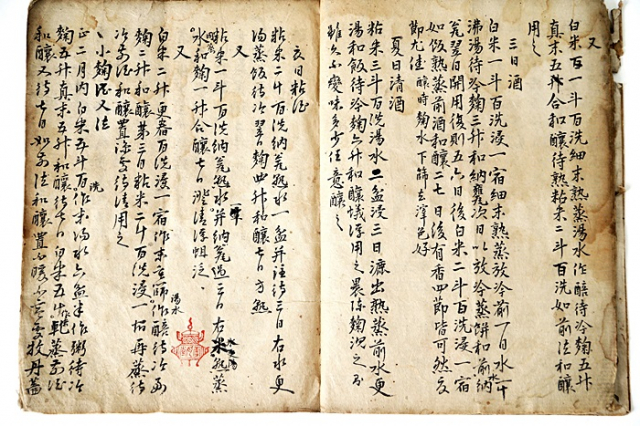 又
白米一斗百洗細末熟蒸湯水作醅待冷麴五升
真末五升合和釀待熟粘米二斗百洗如前法和釀
用之
三日酒
白米一斗百洗浸一宿細末熟蒸放冷前一日水一斗
沸湯待冷麴三升和納甕次日以放冷蒸餠和前納
甕翌日開用後則五六日後白米二斗百洗浸一宿
如飯熟蒸前酒和釀二七日後有香四節皆可然冬
節尤佳釀時麴水下篩去滓色好
夏日清酒
粘米三斗百洗湯水二盆浸三日漉出熟蒸前水更
湯和飯待冷麴六升和釀
雖久不變味多少任意釀之
夏日粘酒
粘米二斗百洗納瓮熟水一盆并注待三日右水更
湯蒸飯待冷翌日麴四升和釀七日方熟
又
粘米一斗百洗納瓮熟水并納瓮過三日右米熟蒸
水和麴一升合釀七日澄清浮蛆泛
又
白米二斗更舂百洗浸一宿作末
麴三升和釀第三日粘米二斗百洗浸一宿再蒸待
冷前酒和釀置涼處待清用之
小麴酒又法
正二月內白米五斗百洗作末湯水六盆半作粥待冷
麴五升真末五升和釀待七日白米五斗
和釀又待七日如前法和釀置